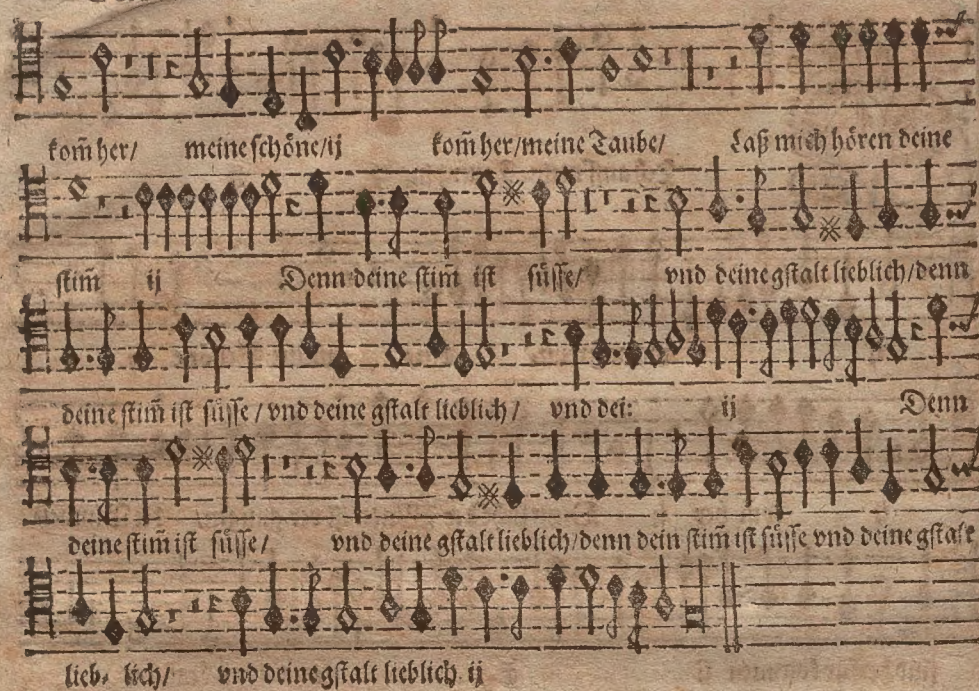 kom̃ her/ meine schöne/ ij kom̃ her/ meine Taube/ Laß mich hören deine
stim̃ ij Denn deine stim̃ ist süsse/ vnd deine gstalt lieblich/ denn
deine stim̃ ist süsse/ vnd deine gstalt lieblich/ vnd dei: ij Denn
deine stim̃ ist süsse/ vnd deine gstalt lieblich/ denn dein stim̃ ist süsse vnd deine gstalt
lieb- lich/ vnd deine gstalt lieblich ij